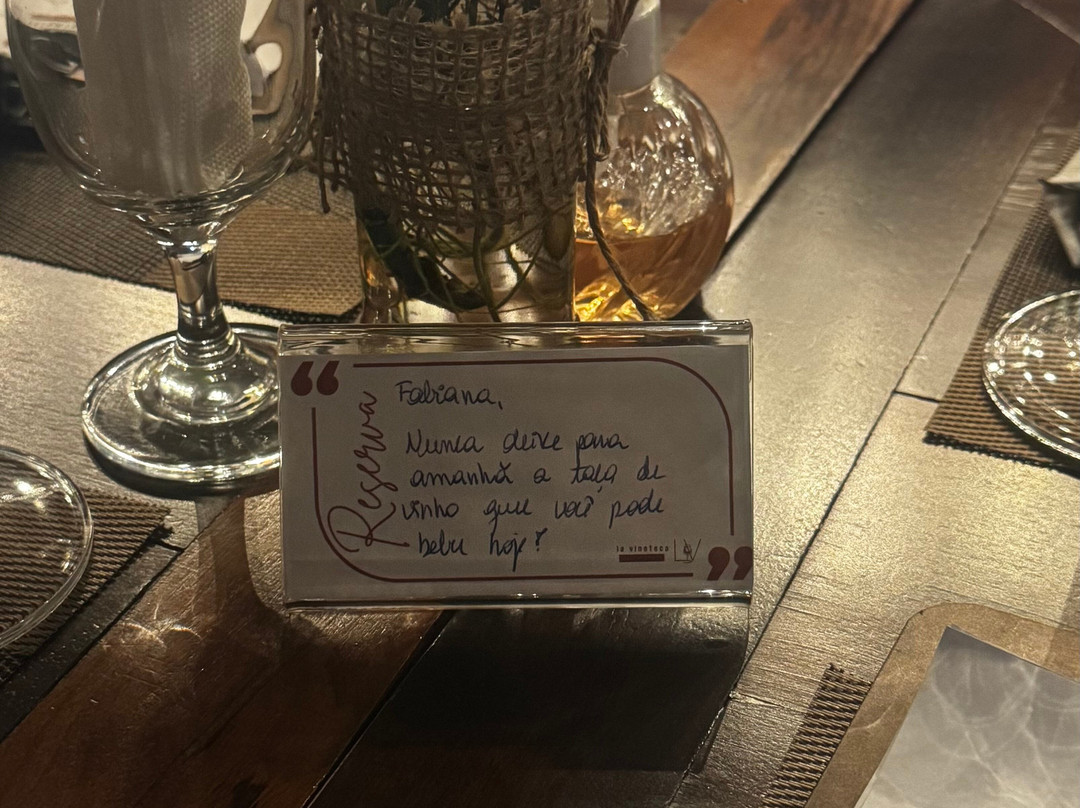 Reserva
Fabiana,
Nunca deixe para
amanhã a taça de
vinho que você pode
beber hoje!
la vinoteca
LV